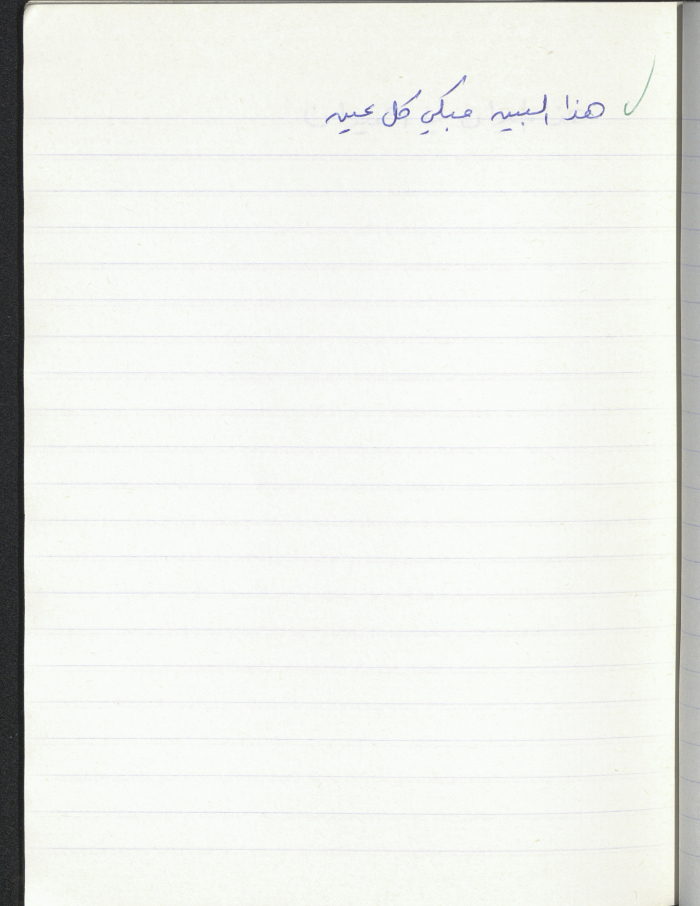 هذا البين مبكي كل عين